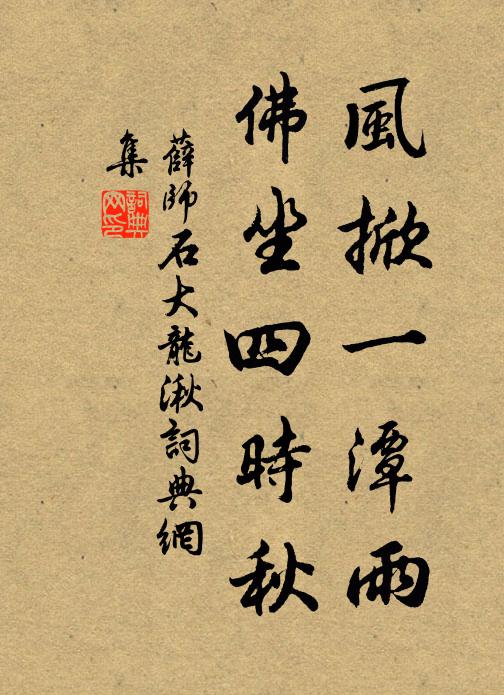 風掀一潭雨
佛坐四時秋
薛師石大龍湫詞典網
集
詞典
网印